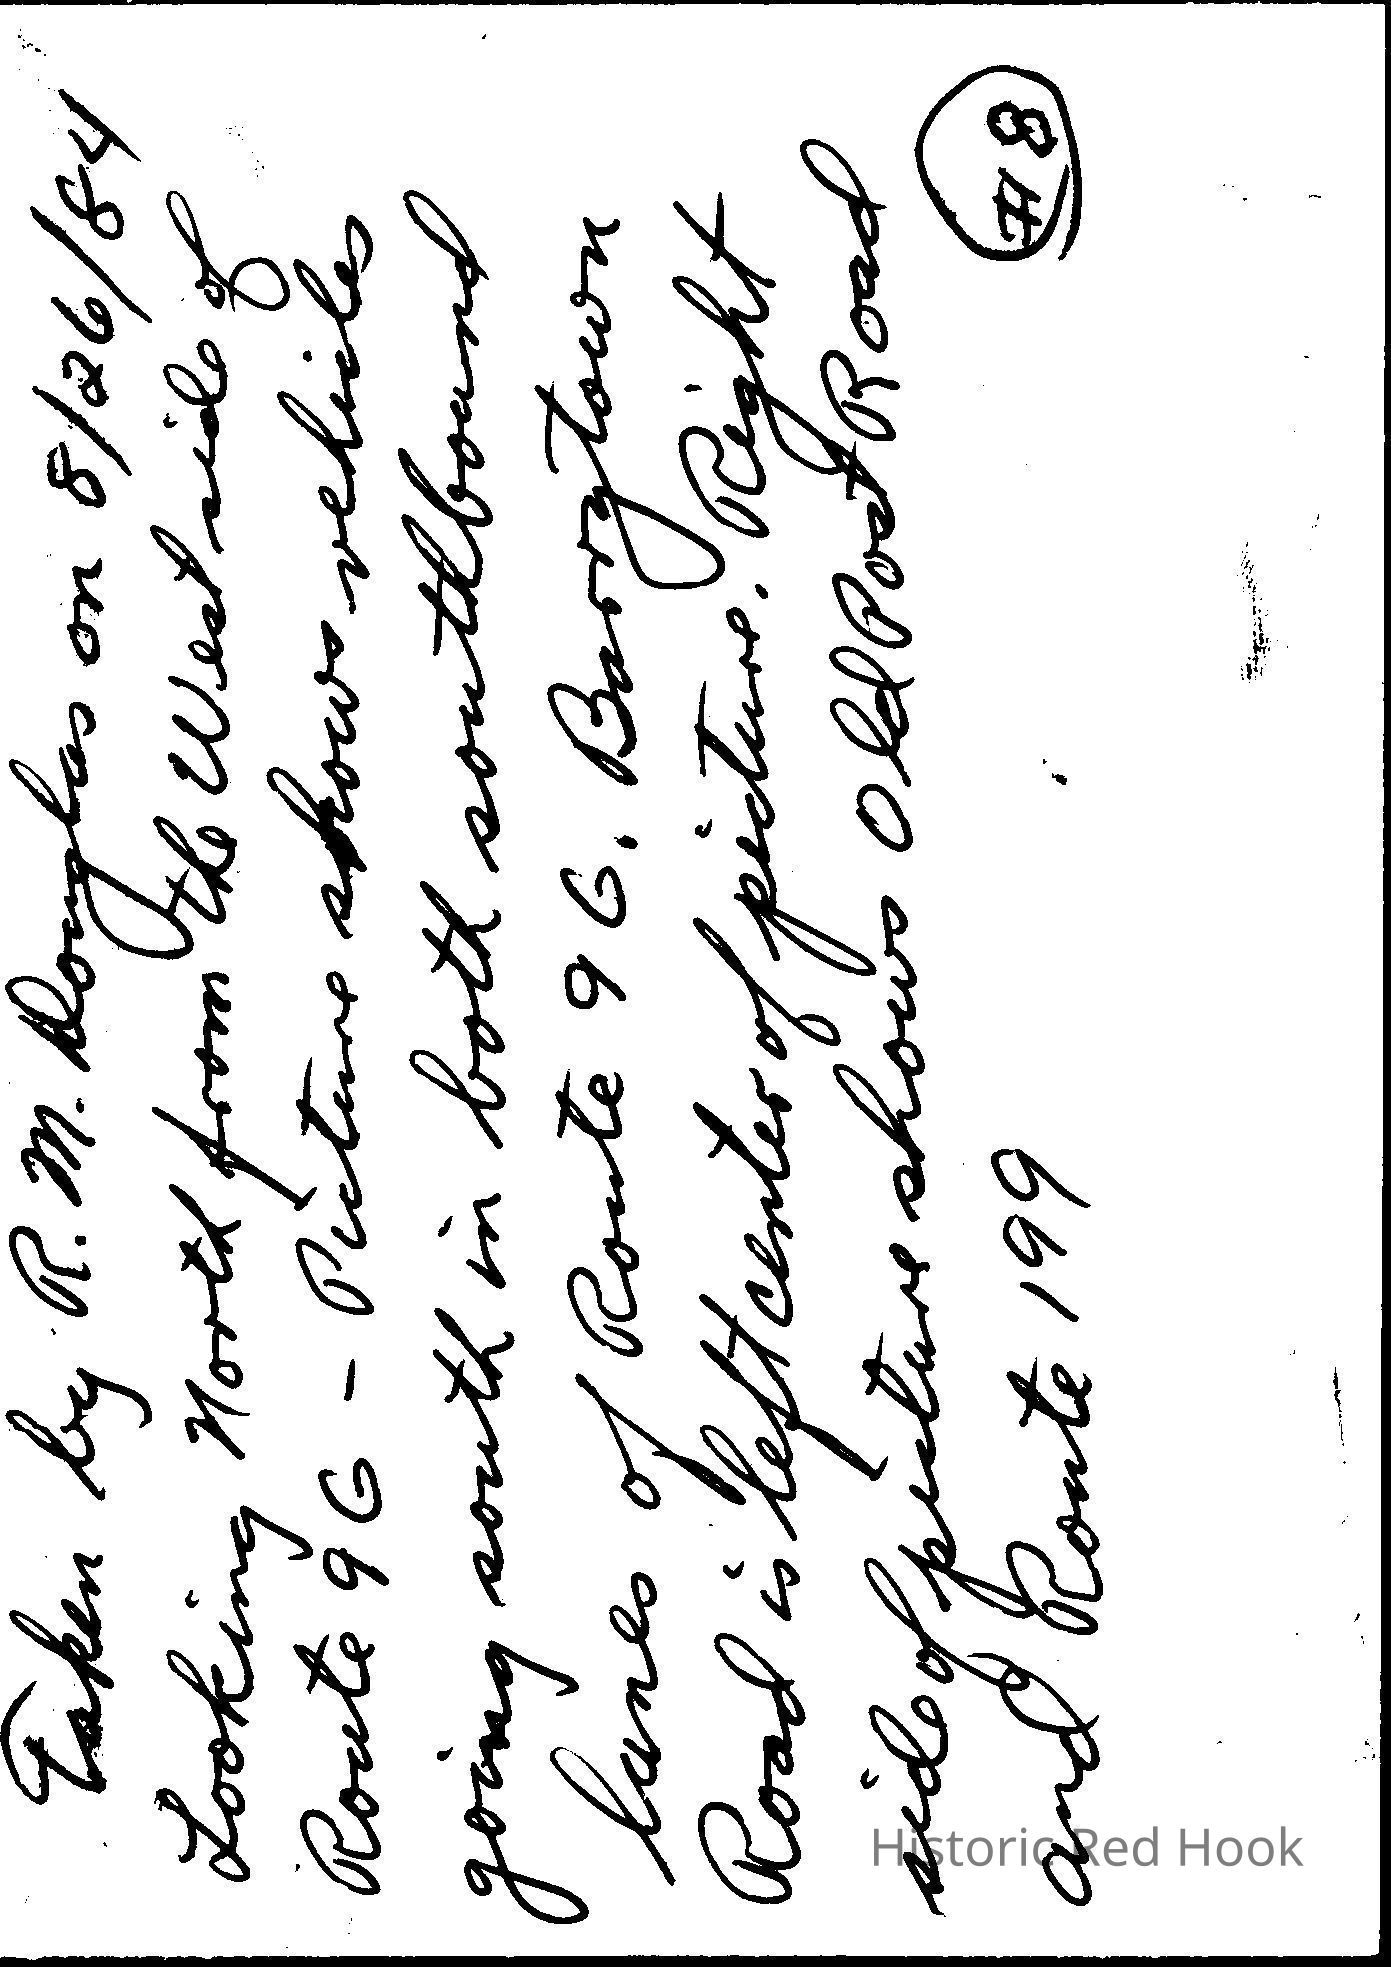 Taken by R. M. Douglas on 8/26/84
Looking North from the West side of
Route 9G - Picture shows vehicles
going south in both southbound
lanes of Route 9G. Barrytown
Road is left center of picture. Right
side of picture shows Old Post Road
and Route 199
#8
Historic Red Hook